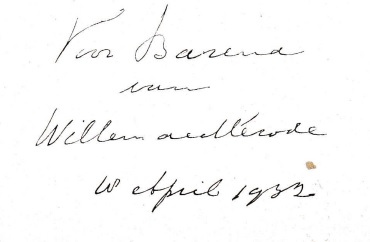 Voor Barend
van
Willem de Mérode
10 April 1932